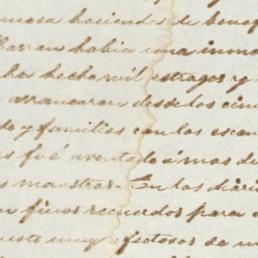 mosa hacienda de benef
Carren habia una inmen
ha hecho mil estragos y
arrancaron desde los cim
do y familias con los escom
s fué aventado á mas de
s maestras. En los diari
n finos recuerdos para
uesto muy afectosos de m